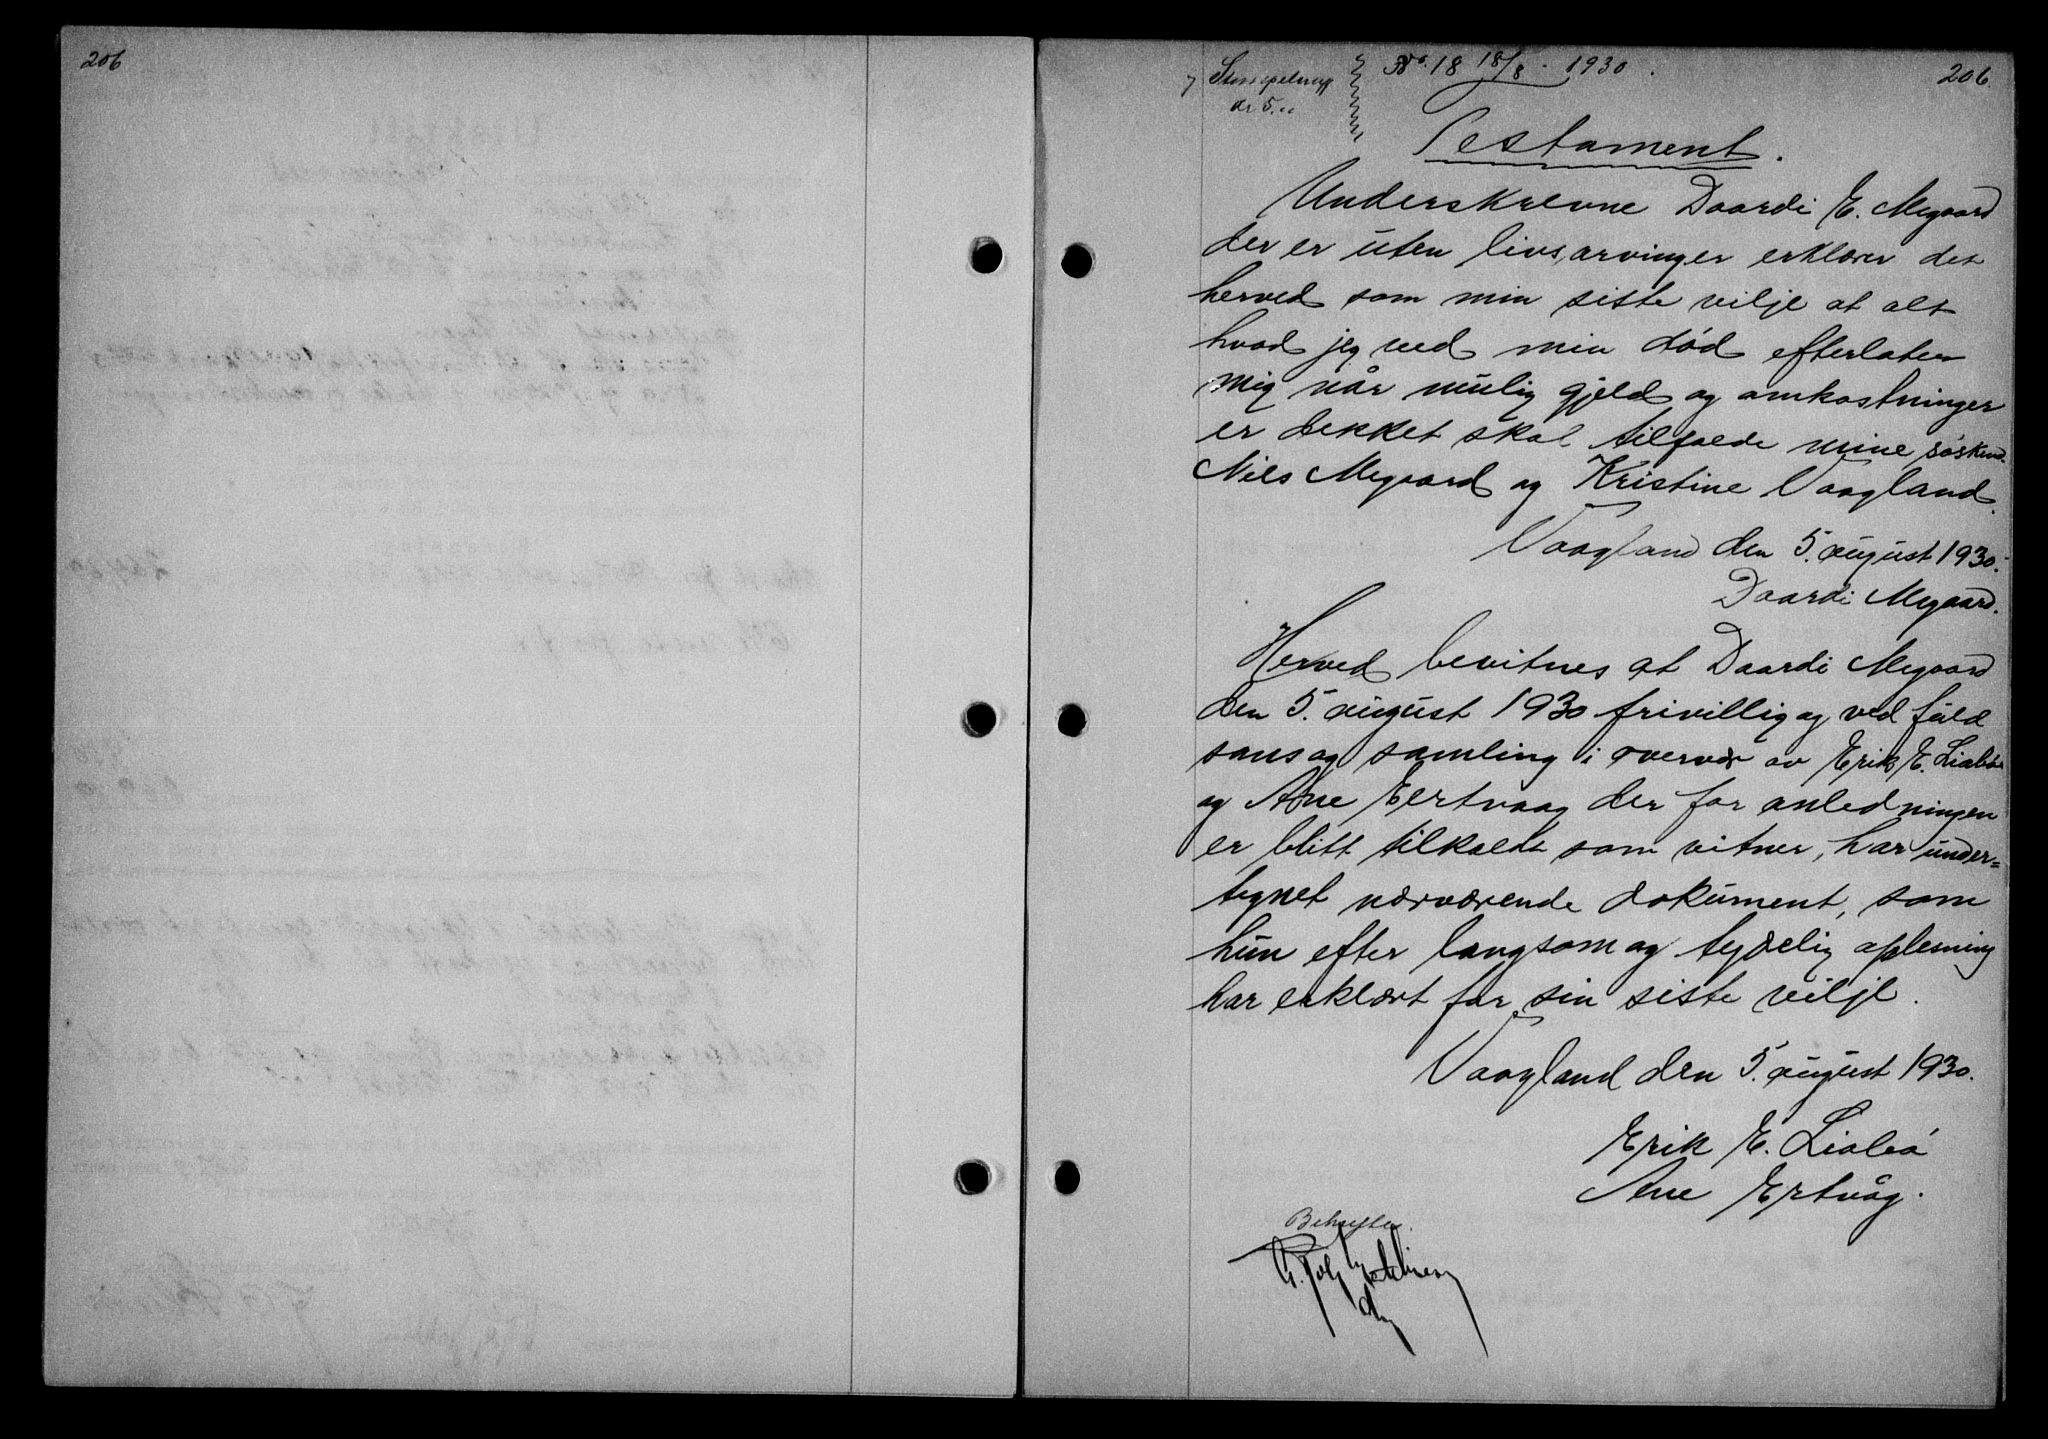 206
206
Stempelmerke
kr 5.00
No. 18 18/8 - 1930.
Testament.
Underskrevne Daardi E. Megaard
der er uten livsarvinger erklærer det
herved som min siste vilje at alt
hvad jeg ved min død efterlater
mig når mulig gjeld og omkostninger
er dekket skal tilfalde mine søskend
Nils Megaard og Kristine Vaagland.
Vaagland den 5. august 1930.
Daardi Megaard.
Herved bevitnes at Daardi Megaard
den 5. august 1930 frivillig og ved fuld
sans og samling i overvær av Erik E. Liabø
og Ane Eertvaag der for anledningen
er blitt tilkaldt som vitner, har under-
tegnet nærværende dokument, som
hun efter langsom og tydelig oplesning
har erklært for sin siste vilje.
Vaagland den 5. august 1930.
Erik E. Liabø
Ane Ertvåg.
Bekreftes.